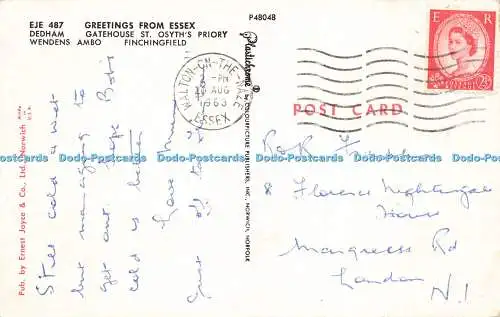 EJE 487 GREETINGS FROM ESSEX
DEDHAM GATEHOUSE ST. OSYTH'S PRIORY
WENDENS AMBO FINCHINGFIELD
P48048
WALTON-ON-THE-NAZE
PM
AUG
1963
ESSEX
E R
POSTAGE
2½D
POST CARD
Plastichrome
by COLOURPICTURE PUBLISHERS, INC., NORWICH, NORFOLK
Pub. by Ernest Joyce & Co., Ltd., Norwich
Made in U.S.A.
Still cold & wet
but managing to
get out. hope Bob's
cold is better
Love Mum
Just off to
R & K
8 Florence Nightingale
House
Rd
London
N.1
Dodo-Postcards Dodo-Postcards Dodo-Postcards Dodo-Postcards Dodo-Postcards